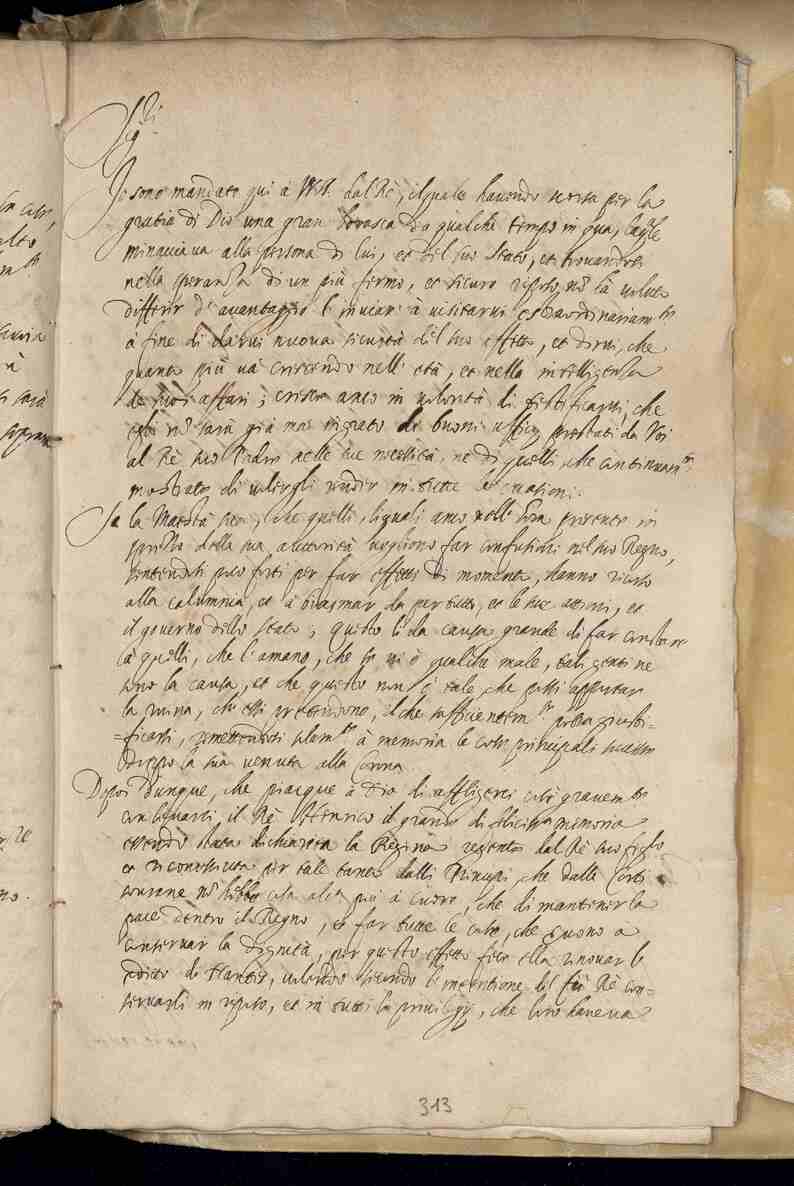 Sig.ri
Io sono mandato qui à VSS. dal Rè, il quale havendo scorsa per la
gratia di Dio una gran borasca da qualche tempo in qua, la qle
minacciava alla persona di lui, et del suo Stato, et trovandosi
nella speranza di un più fermo, et sicuro riposo, nõ hà voluto
differir d'avantaggio l'inviarmi à visitarvi estraordinariamte
à fine di darvi nuova sicurtà del suo affetto, et dirvi, che
quanto più va crescendo nell'età, et nella intelligenza
de suoi affari, cresce anco in volontà di testificarvi, che
egli nõ sarà già mai ingrato de buoni ufficij prestati da Voi
al Rè suo Padre nelle sue necessità, ne di quelli, che continuamte
mostrate di volergli render in tutte le occasioni.
Sa la Maestà sua, che quelli, li quali anco nell'hora presente in
della sua autorità vogliono far confusioni nel suo Regno,
sentendosi poco forti per far effetto di momento, hanno ricorso
alla calomnia, et à biasmar da per tutto, et le sue attioni, et
il governo dello Stato, questo li da causa grande di far constare
à quelli, che l'amano, che se vi è qualche male, tali genti ne
sono la causa, et che questo non è tale che possi apportar
la ruina, ch'essi pretendono, il che sufficientemte potrà giusti-
=ficarsi, remettendosi solamte à memoria le cose principali successe
doppo la sua venuta alla Corona.
Dapoi dunque, che piacque à Dio di affligerci così gravemte
con levarci il Rè Henrico il grande di felicissma memoria
essendo stata dichiarata la Regina regente dal Rè suo figlo
et riconosciuta per tale tanto dalli Principi, che dalle Corti
sovrane nõ hebbe cosa alcuna più à cuore, che di mantener la
pace dentro il Regno, et far tutte le cose, che erano a
conservar la dignità, per questo effetto fece ella rinovar l'
editto di Nantes, volendo secondo l'intentione del fù Rè con-
servarli in riposo, et in tutti li privilegij, che loro haveva
313